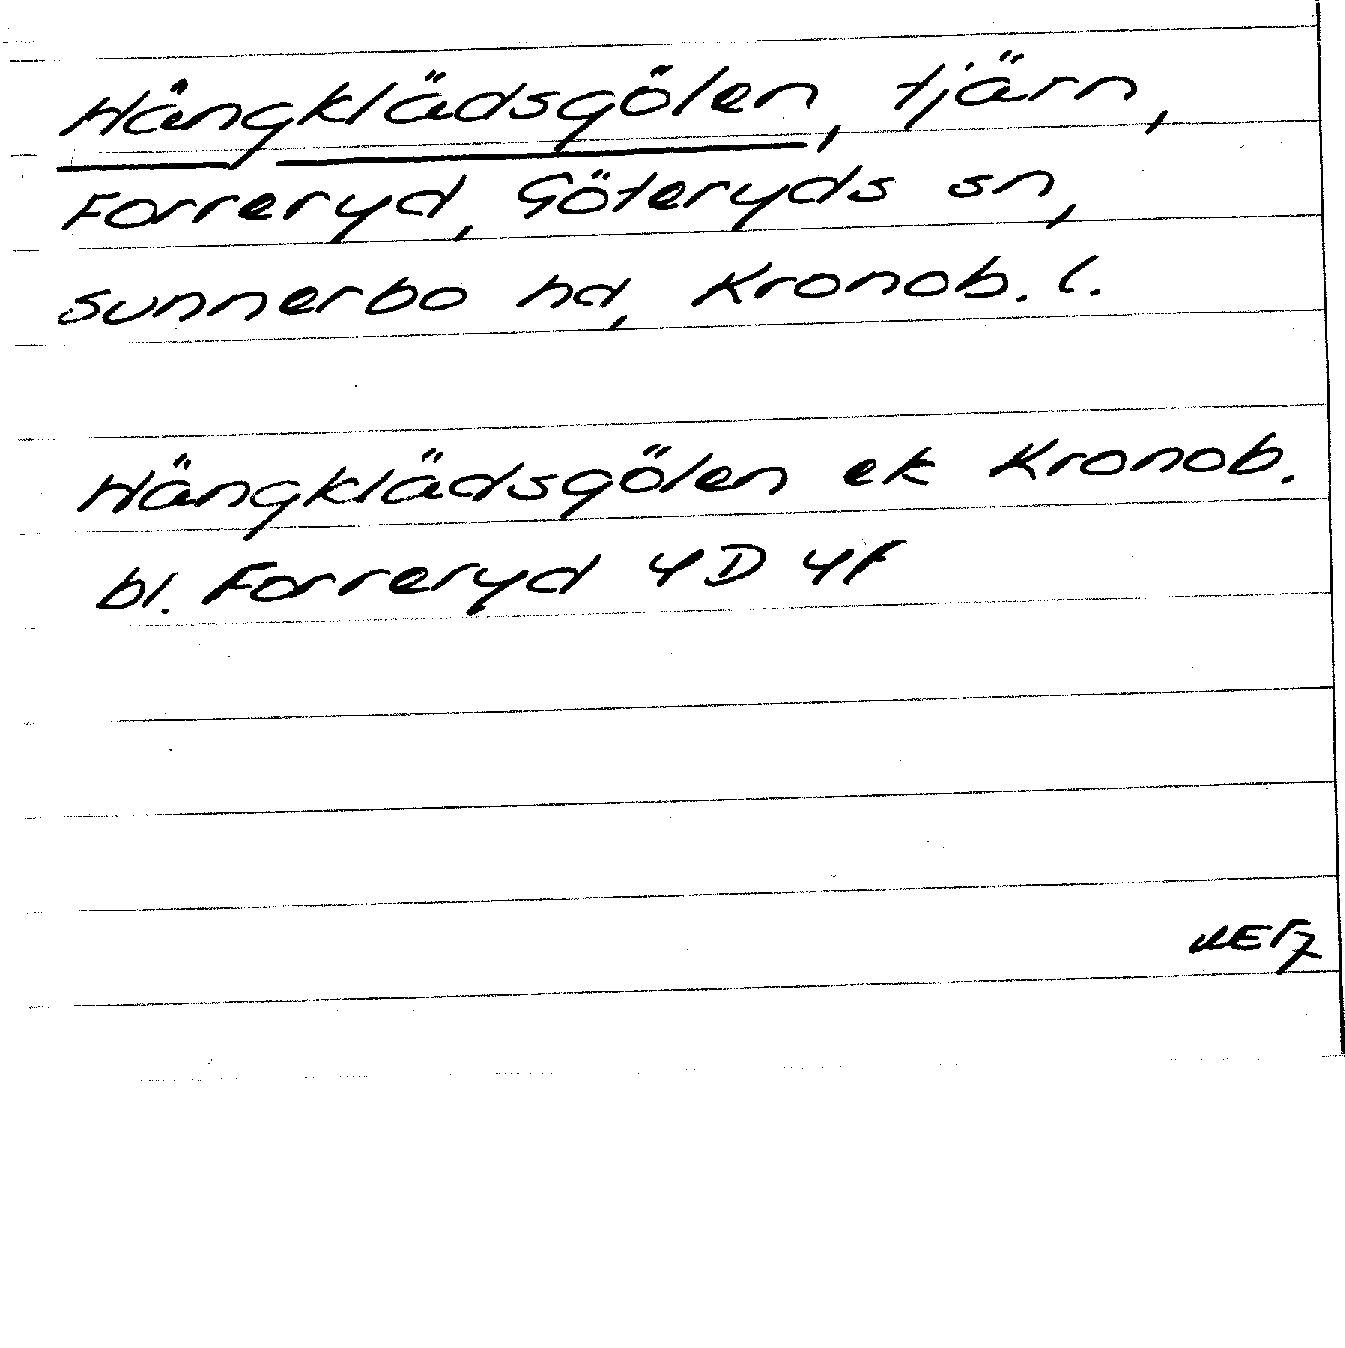 Hångklädsgölen, tjärn,
Forreryd, Göteryds sn,
Sunnerbo hd, Kronob. l.
Hängklädsgölen ek Kronob.
bl. Forreryd 4D 4f